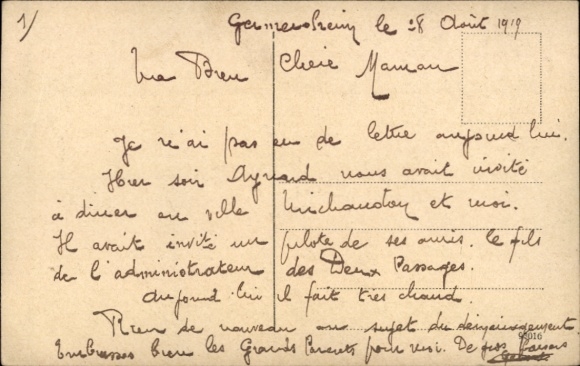 1)
Germersheim le 28 Août 1919
Ma Bien Chère Maman
Je n'ai pas eu de lettre aujourd'hui.
Hier soir Aynard nous avait invité
à diner en ville Michaudon et moi.
Il avait invité un pilote de ses amis. le fils
de l'administrateur des Deux Passages.
Aujourd'hui il fait très chaud.
Rien de nouveau au sujet du déménagement
Embrasses bien les Grands Parents pour moi. De gros baisers